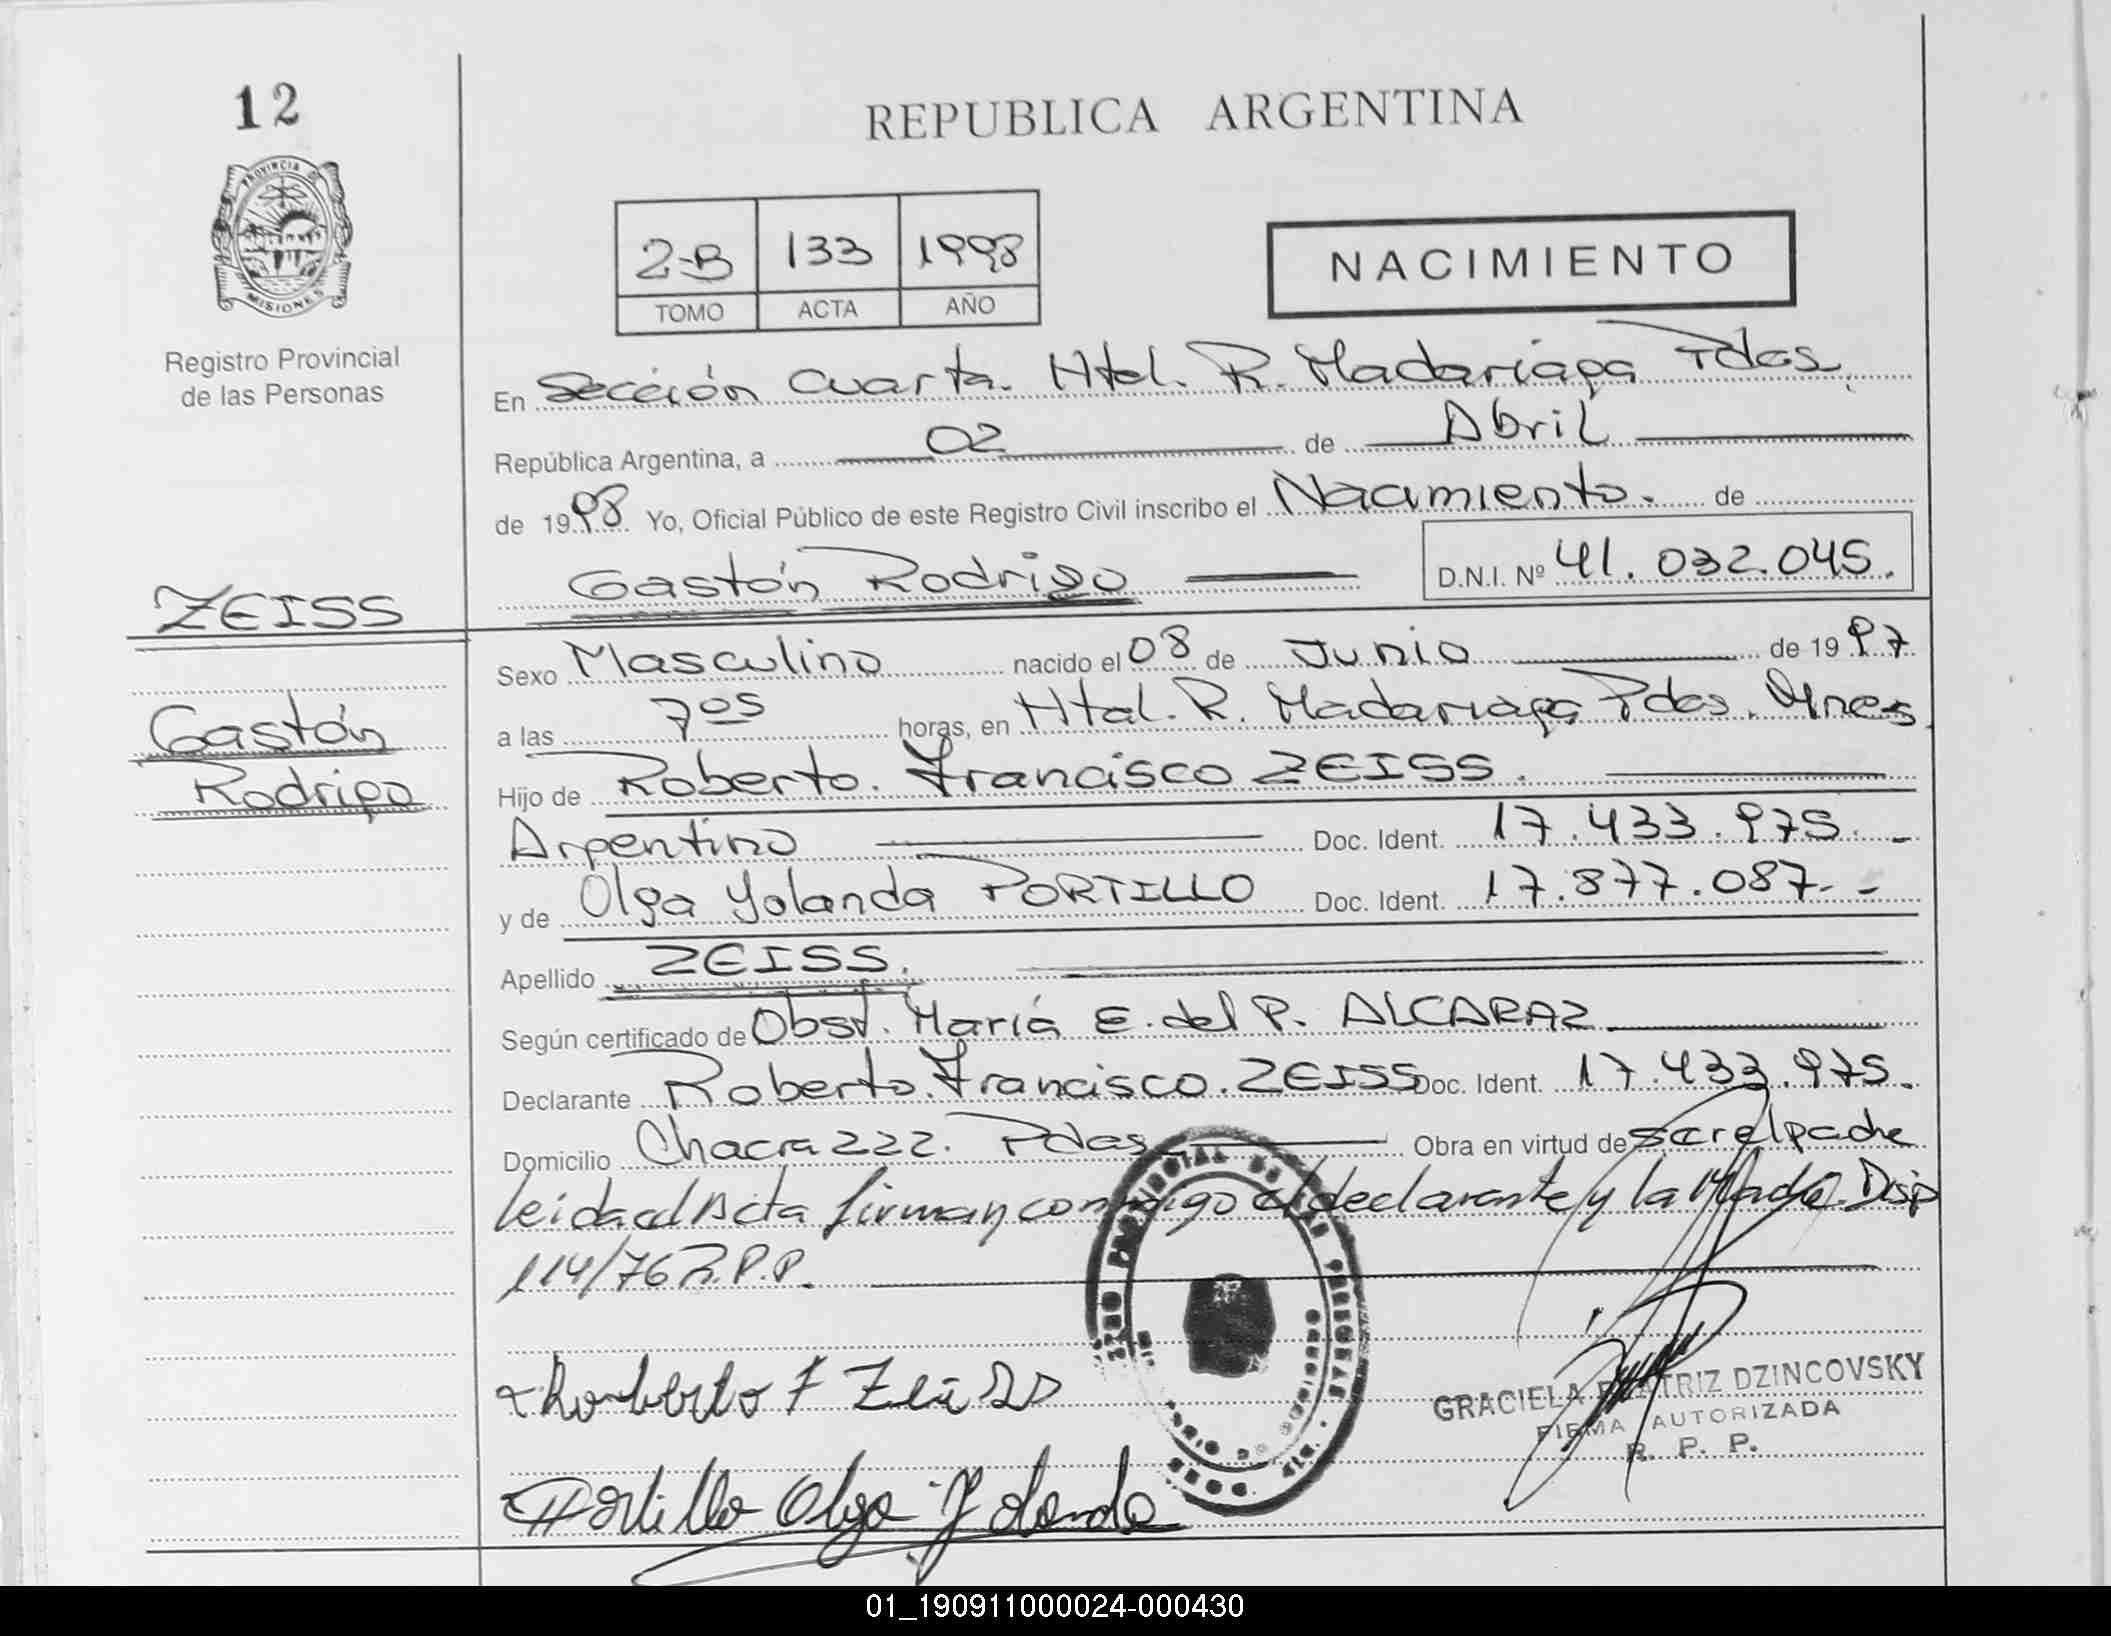 12
REPUBLICA ARGENTINA
PROVINCIA D
MISIONES
Registro Provincial
de las Personas
2-B 133 1998
TOMO ACTA AÑO
NACIMIENTO
En Sección Cuarta. Htal. R. Madariaga Pdas.
República Argentina, a 02 de Abril
de 1998 Yo, Oficial Público de este Registro Civil inscribo el Nacimiento. de
Gastón Rodrigo D.N.I. Nº 41.032.045.
ZEISS
Gastón
Rodrigo
Sexo Masculino nacido el 08 de Junio de 1997
a las 7os horas, en Htal. R. Madariaga Pdas. Mnes
Hijo de Roberto. Francisco ZEISS.
Argentino Doc. Ident. 17.433.975.-
y de Olga Yolanda PORTILLO Doc. Ident. 17.877.087.-
Apellido ZEISS.
Según certificado de Obst. María E. del P. ALCARAZ
Declarante Roberto. Francisco. ZEISS Doc. Ident. 17.433.975.
Domicilio Chacra 222. Pdas Obra en virtud de ser el padre
leida el Acta firman conmigo el declarante y la Madre. Disp
114/76 R.P.P.
Romberto F Zeiss
GRACIELA BEATRIZ DZINCOVSKY
FIRMA AUTORIZADA
R. P. P.
Portillo Olga Yolanda
01_190911000024-000430